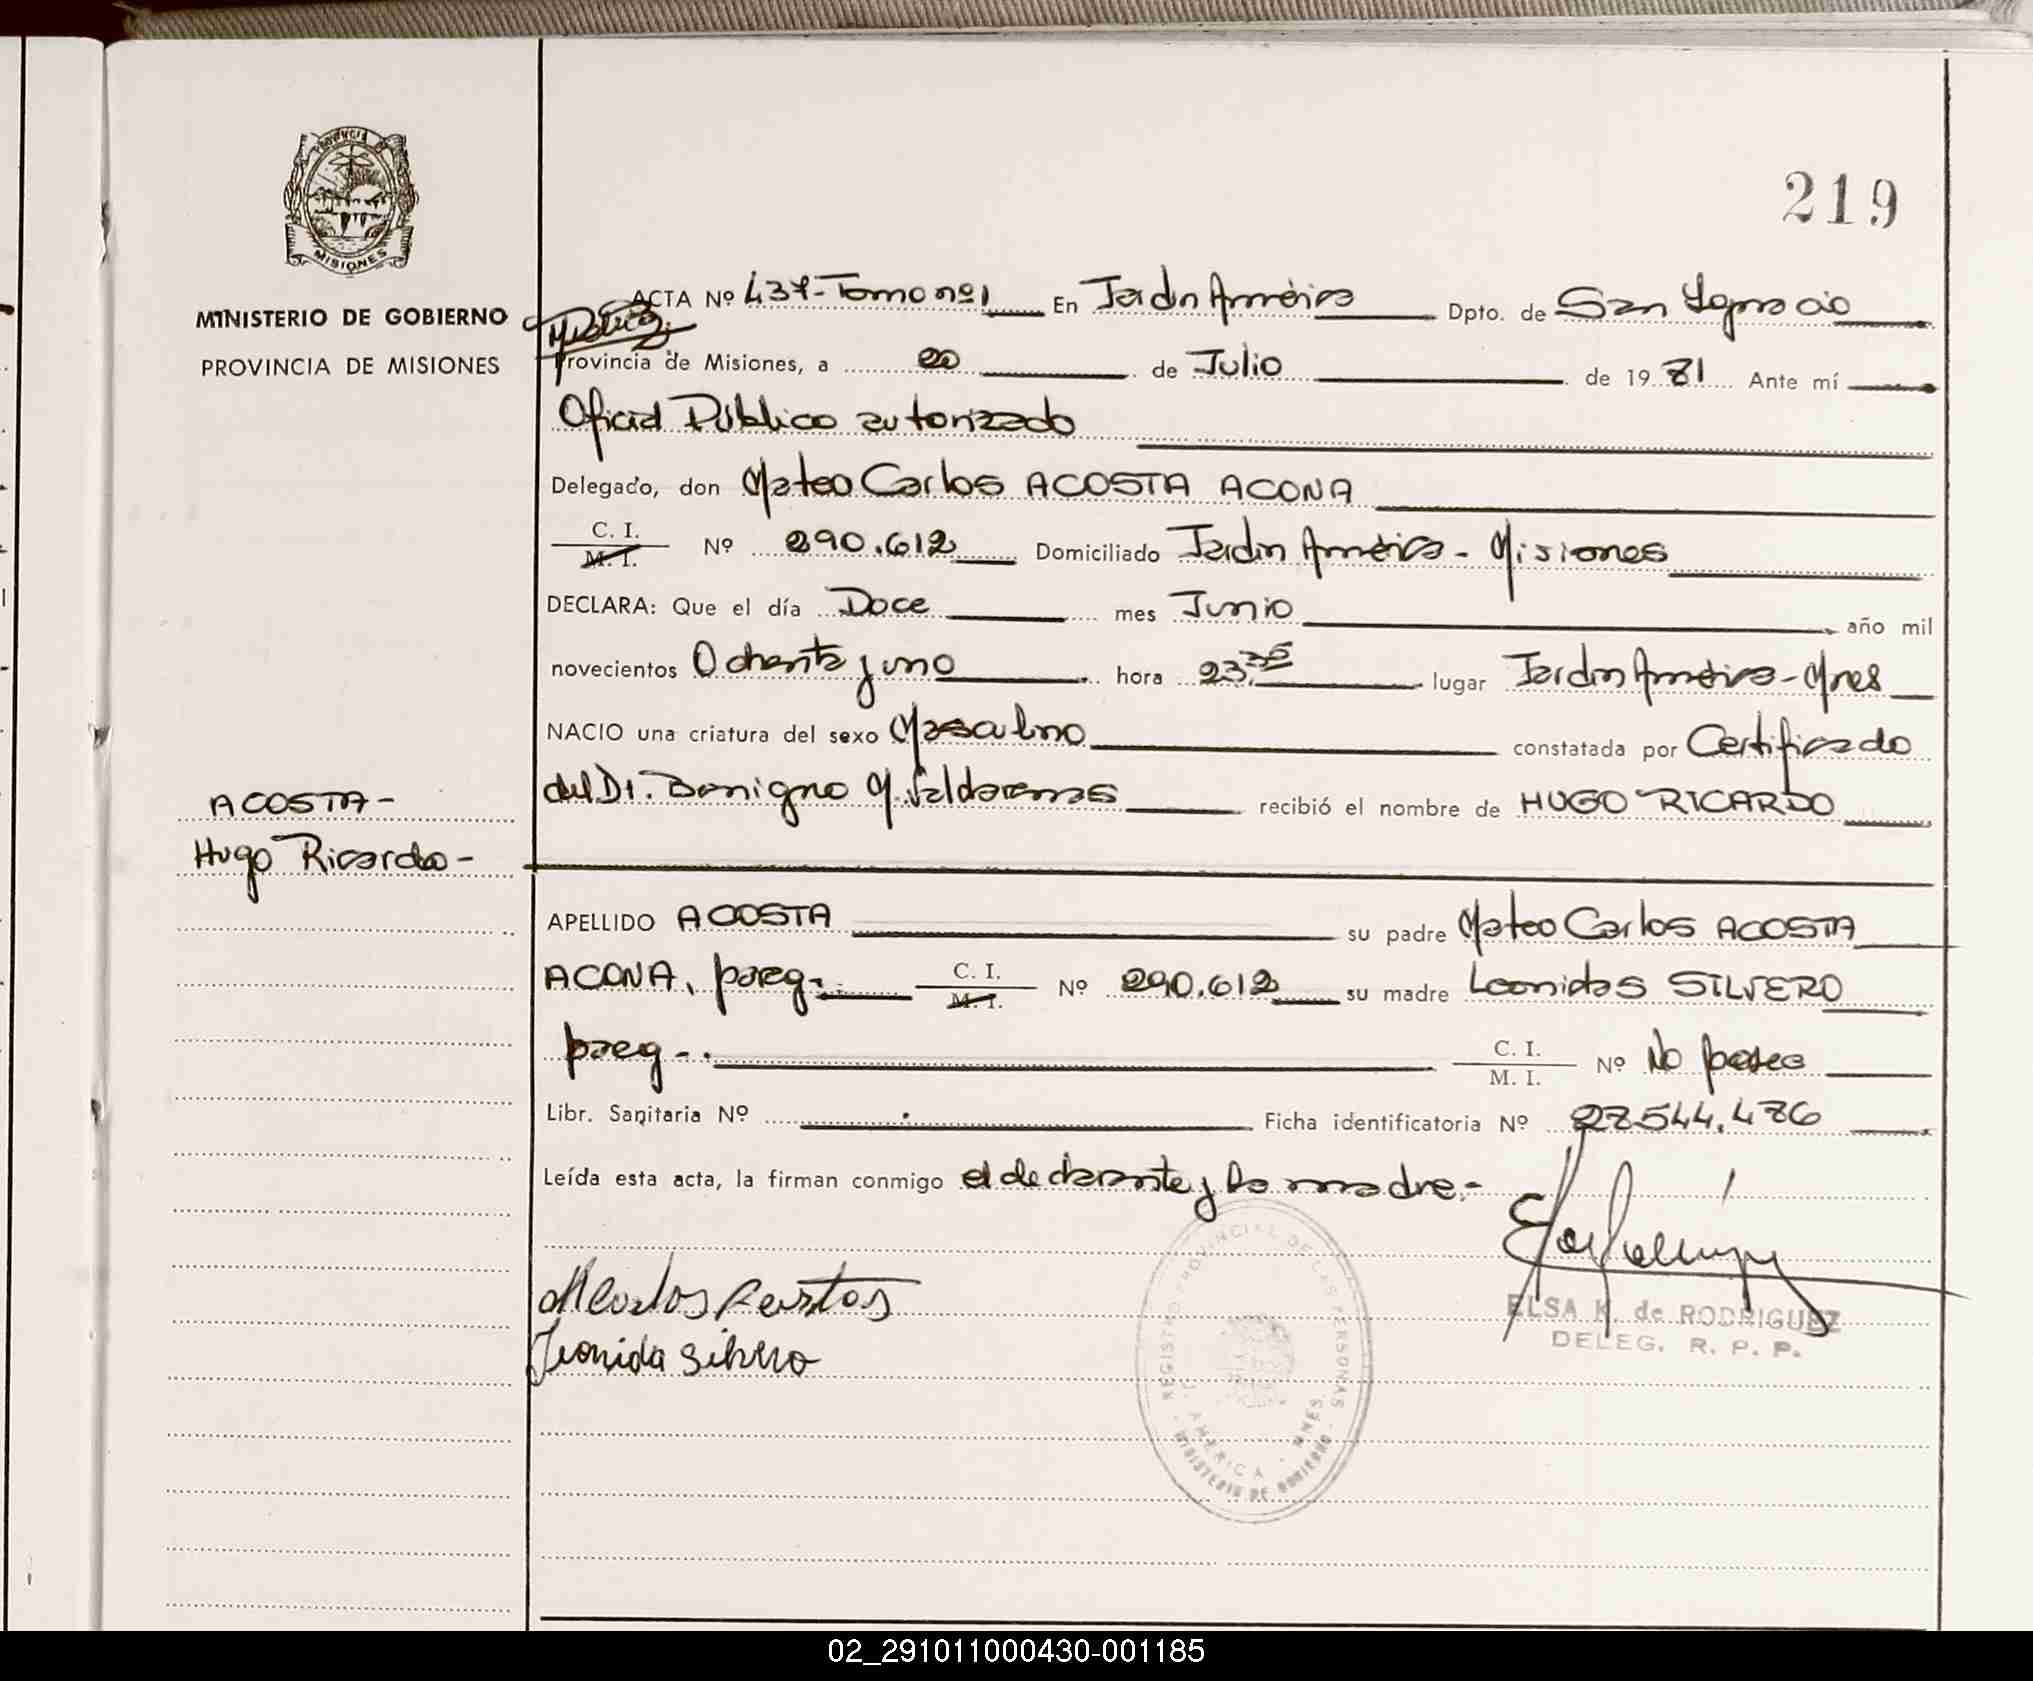 219
PROVINCIA DE
MISIONES
MINISTERIO DE GOBIERNO
PROVINCIA DE MISIONES
ACTA Nº 437-Tomo nº 1 En Jardín América Dpto. de San Ignacio
Provincia de Misiones, a 20 de Julio de 1981 Ante mí
Oficial Público autorizado
Delegado, don Mateo Carlos ACOSTA ACONA
C. I.
M. I. Nº 290.612 Domiciliado Jardín América - Misiones
DECLARA: Que el día Doce mes Junio año mil
novecientos Ochenta y uno hora 23,35 lugar Jardín América - Mnes
NACIO una criatura del sexo Masculino constatada por Certificado
del Dr. Benigno M. Valdarenas recibió el nombre de HUGO RICARDO
ACOSTA-
Hugo Ricardo-
APELLIDO ACOSTA su padre Mateo Carlos ACOSTA
ACONA, parag. C. I.
M. I. Nº 290.612 su madre Leonidas SILVERO
parag-. C. I.
M. I. Nº No posee
Libr. Sanitaria Nº Ficha identificatoria Nº 28.544.486
Leída esta acta, la firman conmigo el declarante y la madre.-
Leonida Silvero
REGISTRO PROVINCIAL DE LAS PERSONAS
J. AMERICA - MNES.
MINISTERIO DE GOBIERNO
ELSA K. de RODRIGUEZ
DELEG. R. P. P.
02_291011000430-001185